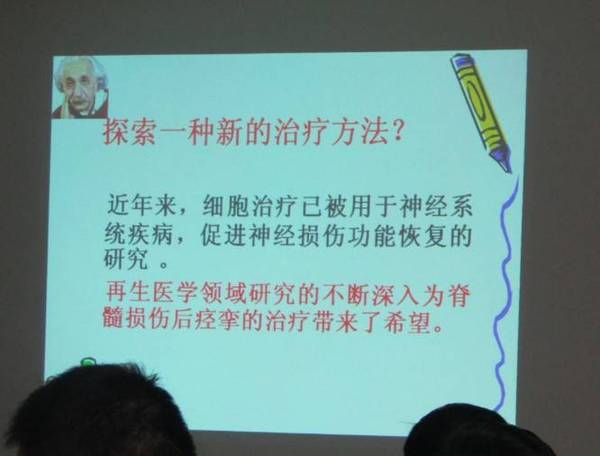 探索一种新的治疗方法？
近年来，细胞治疗已被用于神经系
统疾病，促进神经损伤功能恢复的
研究 。
再生医学领域研究的不断深入为脊
髓损伤后痉挛的治疗带来了希望。